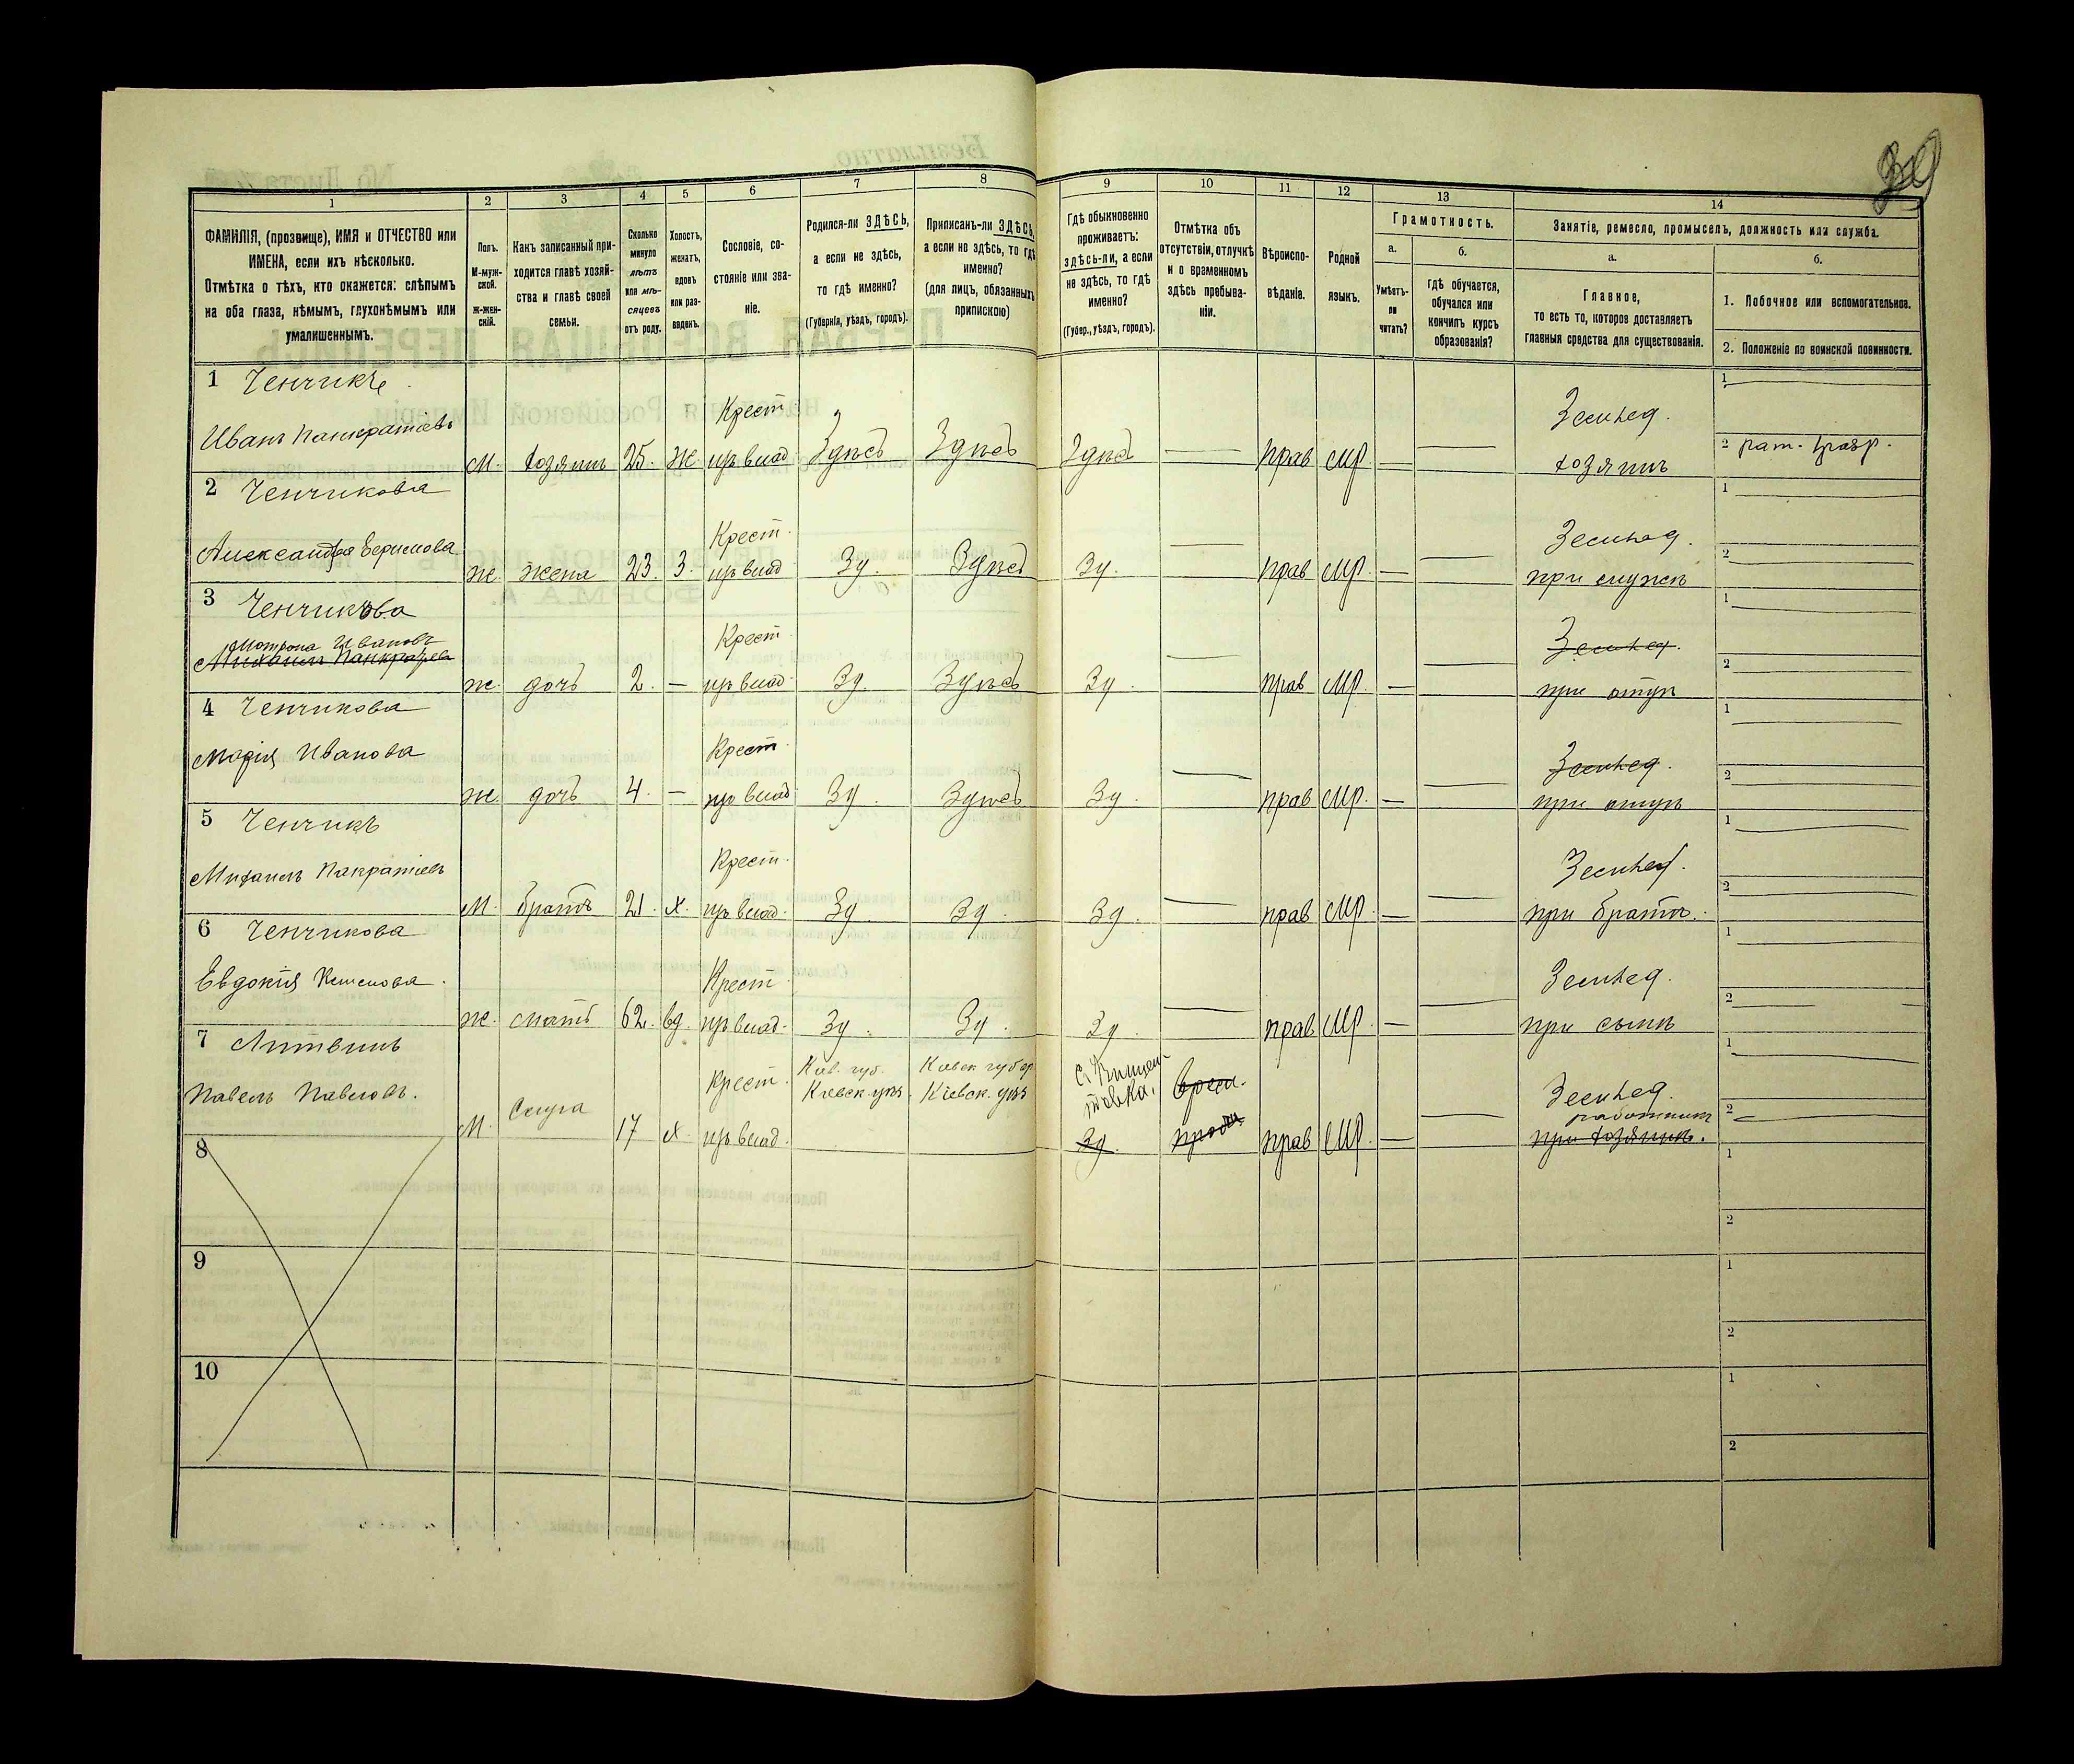 39
1 2 3 4 5 6 7 8 9 10 11 12 13 14
ФАМИЛІЯ, (прозвище), ИМЯ и ОТЧЕСТВО или
ИМЕНА, если ихъ нѣсколько.
Отмѣтка о тѣхъ, кто окажется: слѣпымъ
на оба глаза, нѣмымъ, глухонѣмымъ или
умалишеннымъ.
Полъ.
М-муж-
ской.
Ж-жен-
скій.
Какъ записанный при-
ходится главѣ хозяй-
ства и главѣ своей
семьи.
Сколько
минуло
лѣтъ
или мѣ-
сяцевъ
отъ роду.
Холостъ,
женатъ,
вдовъ
или раз-
веденъ.
Сословіе, со-
стояніе или зва-
ніе.
Родился-ли ЗДѢСЬ,
а если не здѣсь,
то гдѣ именно?
(Губернія, уѣздъ, городъ).
Приписанъ-ли ЗДѢСЬ,
а если не здѣсь, то гдѣ
именно?
(для лицъ, обязанныхъ
припискою)
Гдѣ обыкновенно
проживаетъ:
здѣсь-ли, а если
не здѣсь, то гдѣ
именно?
(Губер., уѣздъ, городъ).
Отмѣтка объ
отсутствіи, отлучкѣ
и о временномъ
здѣсь пребыва-
ніи.
Вѣроиспо-
вѣданіе.
Родной
языкъ.
Грамотность.
а.
Умѣетъ-
ли
читать?
б.
гдѣ обучается,
обучался или
кончилъ курсъ
образованія?
Занятіе, ремесло, промыселъ, должность или служба.
а.
Главное,
то есть то, которое доставляетъ
главныя средства для существованія.
б.
1. Побочное или вспомогательное.
2. Положеніе по воинской повинности.
1 Ченчикъ
Иванъ Панкратіевъ
М. хозяинъ 25. Ж Крест. Здѣсь Здѣсь Здѣсь — прав мр. — — Земѣед.
хозяинъ
1 —
2 рат.
2 Ченчикова
Александра
ж. жена 23. З. Крест. Зд. Здѣсь Зд. — прав мр. — — Земѣед.
при мужѣ
1 —
2 —
3 Ченчикова
Мотрона Иванов
Михаилъ Панкратіев
ж. дочь 2. — Крест Зд. Здѣсь Зд. — прав мр. — — Земѣед.
при отцѣ
1 —
2 —
4 Ченчикова
Марія Иванова
ж. дочь 4. — Крест. Зд. Здѣсь Зд. — прав мр. — — Земѣед.
при отцѣ
1 —
2 —
5 Ченчикъ
Михаилъ Панкратіевъ
М. братъ 21. х. Крест. Зд. Зд. Зд. — прав мр. — — Земѣед.
при братѣ.
1 —
2 —
6 Ченчикова
Евдокія
ж. мать 62. вд. Крест Зд. Зд. Зд. — прав мр. — — Земѣед.
при сынѣ
1 —
2 —
7 Литвинъ
Павелъ Павловъ.
М. Слуга 17 х. Крест.
Кіев. губ.
Кіевск. уѣз
Кіевск. губер
Кіевск. уѣз
Зд.
Врем.
прав мр. — — Земѣед.
работникъ
при хозяинѣ.
1 —
2 —
8
1
2
9
1
2
10
1
2